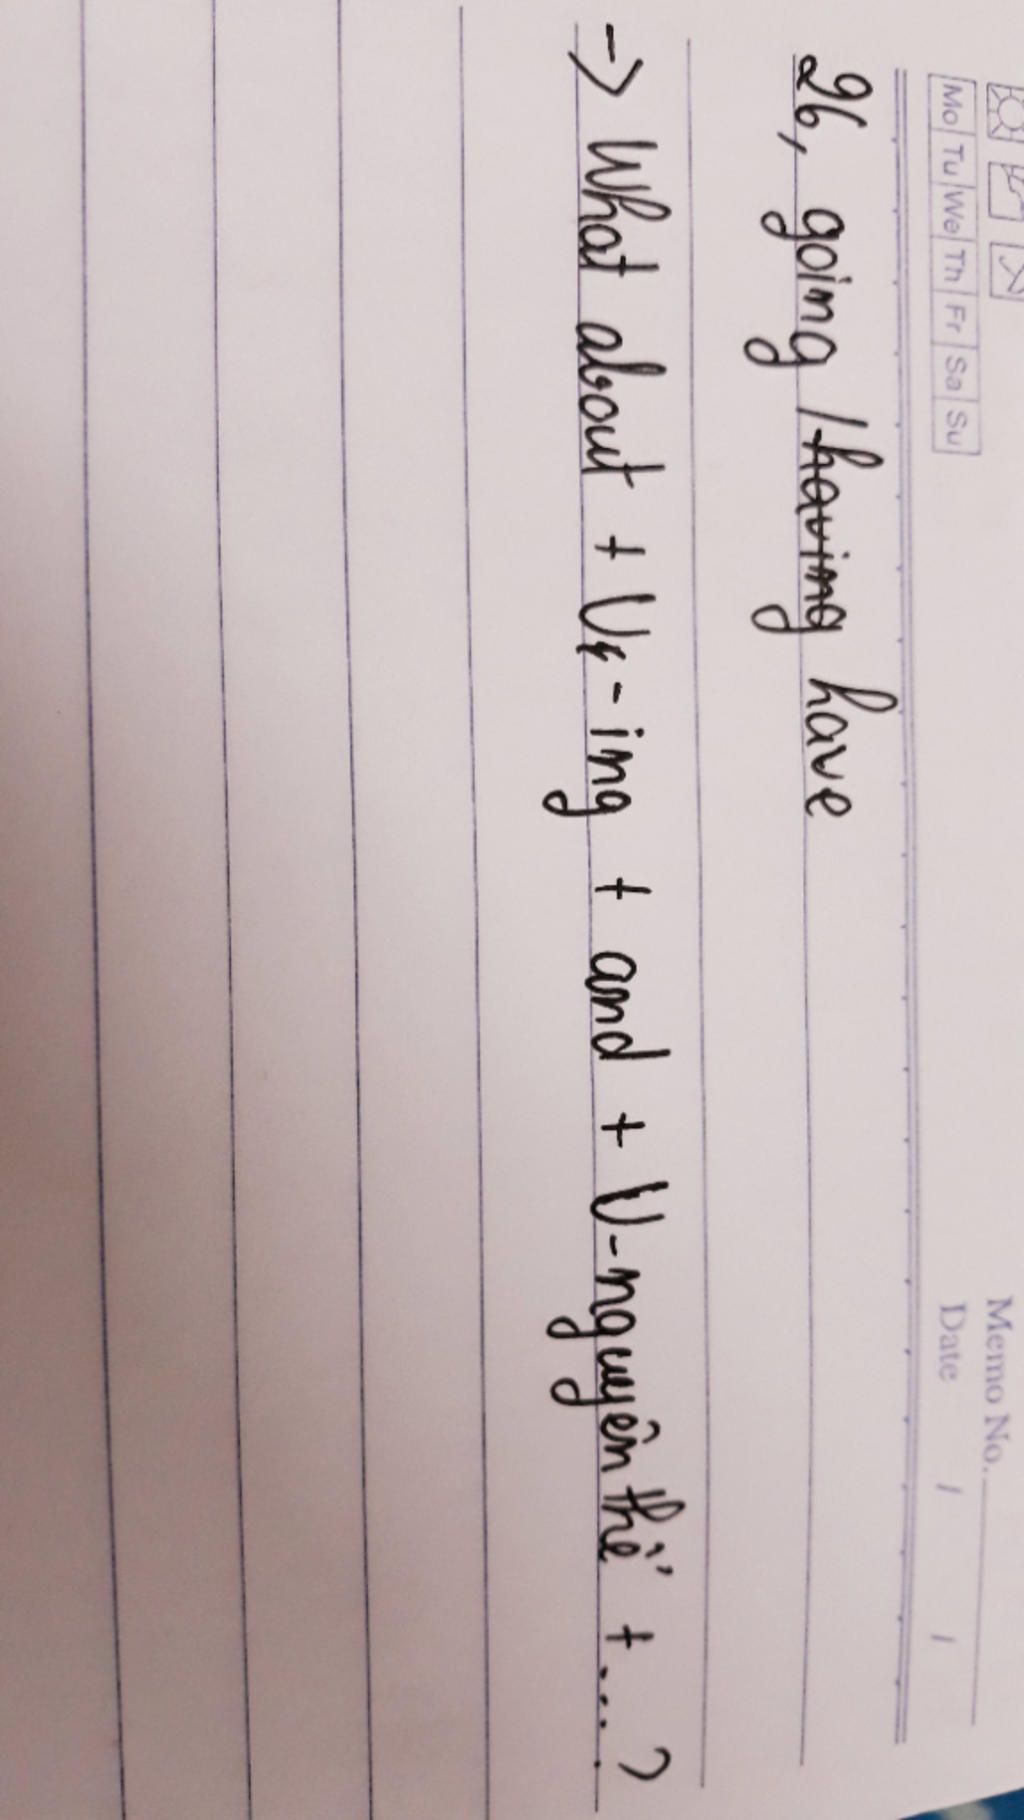 Memo No.
Mo Tu We Th Fr Sa Su
Date / /
26, going / having have
-> What about + V-ing + and + V-nguyên thể + ....?